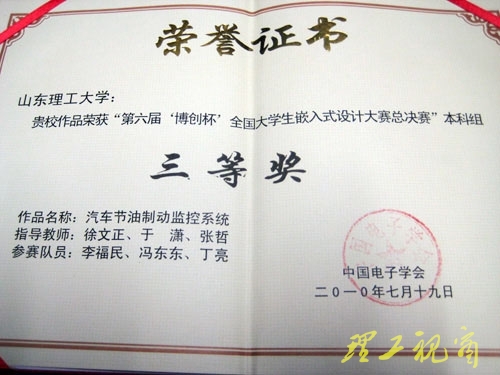 荣誉证书
山东理工大学：
贵校作品荣获“第六届‘博创杯’全国大学生嵌入式设计大赛总决赛”本科组
三等奖
作品名称：汽车节油制动监控系统
指导教师：徐文正、于　潇、张哲
参赛队员：李福民、冯东东、丁亮
中国电子学会
二〇一〇年七月十九日
理工视窗